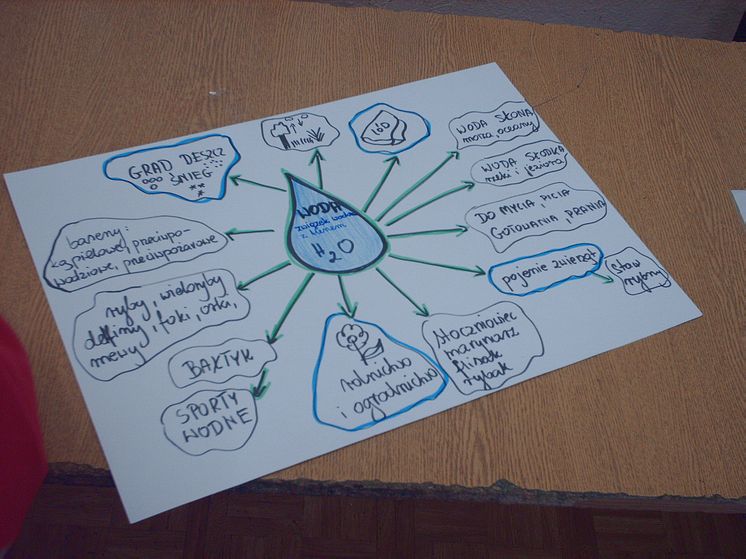 WODA
związek wodoru
z tlenem
H₂O
GRAD DESZCZ
ŚNIEG
100
WODA SŁONA
morza, oceany
WODA SŁODKA
rzeki i jeziora
DO MYCIA, PICIA
GOTOWANIA, PRANIA
pojenie zwierząt
staw
rybny
stoczniowiec
marynarz
flisak
rybak
rolnictwo
i ogrodnictwo
BAŁTYK
SPORTY
WODNE
ryby, wieloryby
delfiny, foki, orki,
mewy
baseny:
kąpielowe, przeciwpo-
wodziowe, przeciwpożarowe